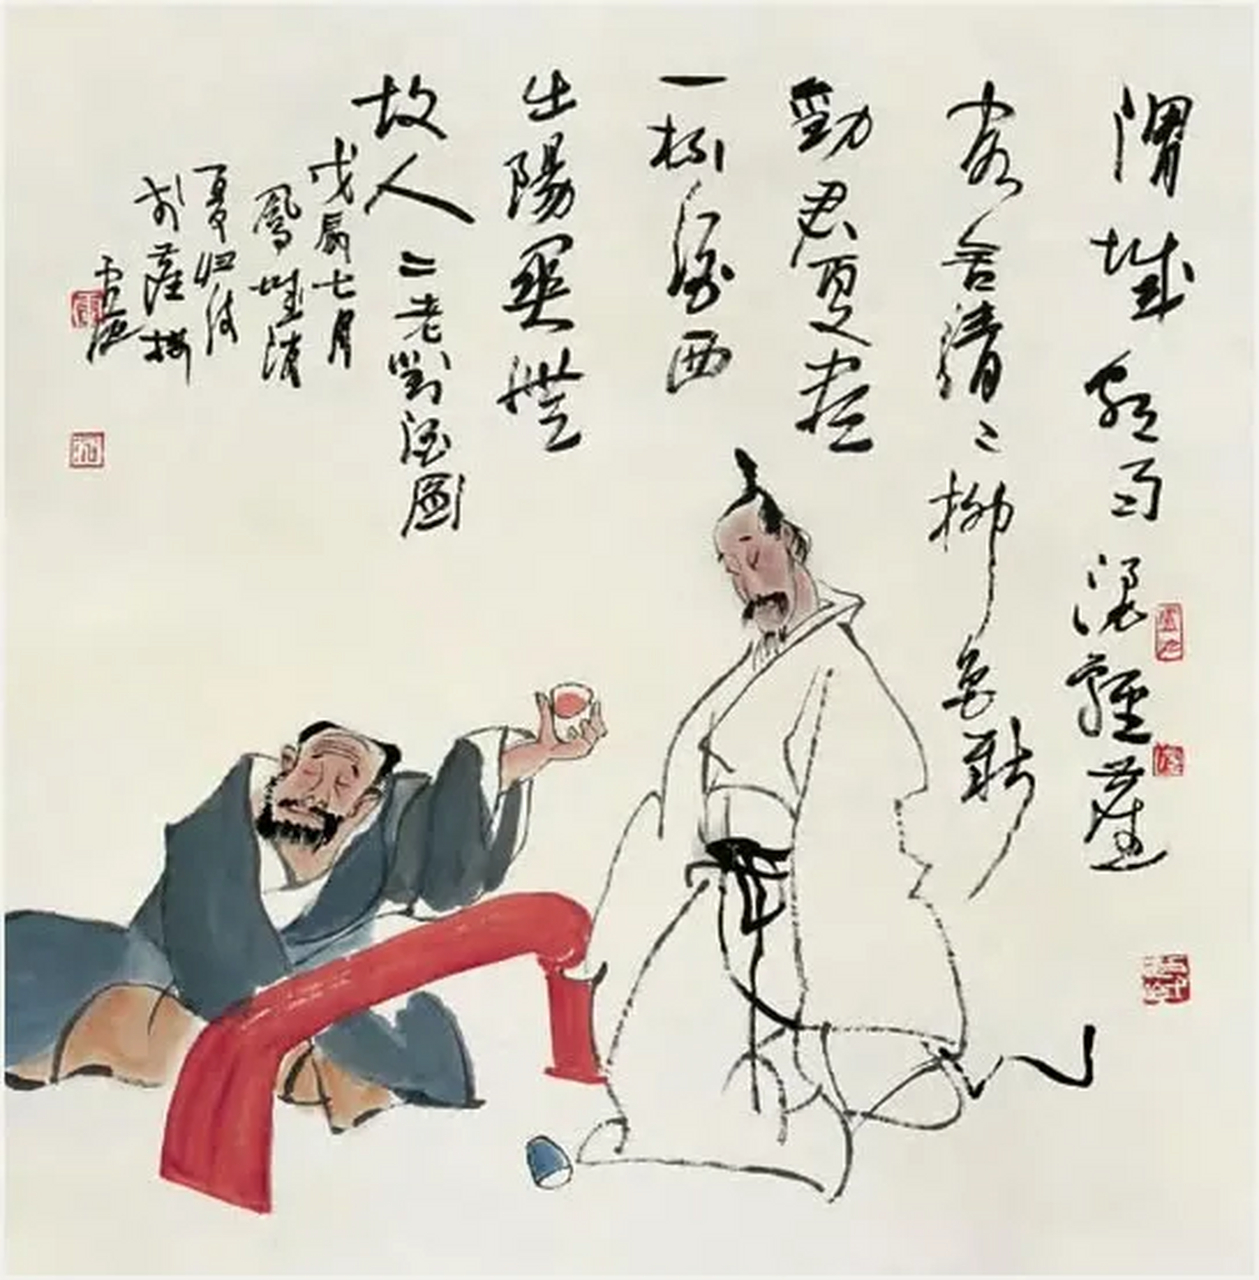 渭城朝雨浥輕塵
客舍清〻柳色新
勸君更盡
一杯酒西
出陽關無
故人 二老對酒圖
戊辰七月
鳳城消
夏归後
於
盧沉